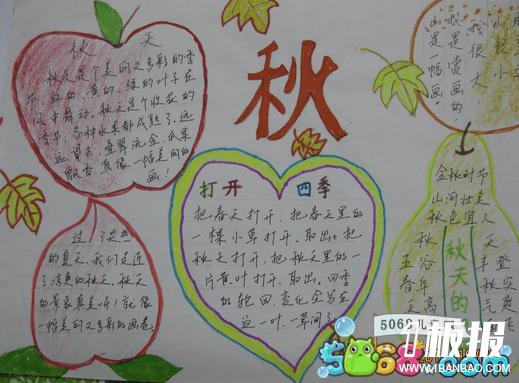 秋天
秋天是个美丽又多彩的季
节，红的、黄的、绿的叶子在
风中舞动，秋天是个收获的
季节，各种水果都成熟了，远
远望来，叠翠流金，瓜果
飘香，真像一幅美丽的
画！
秋
打开 四季
把春天打开，把春天里的
一棵小草打开，取出。把
秋天打开，把秋天里的一
片黄叶打开，取出，四季
的轮回、变化全写在
这一叶一草间了
过了炎热
的夏天，我们走进
了凉爽的秋天，秋天
的景象真美呀！就像
一幅美丽又多彩的画卷
我很大，
我是赏画的，
山是一幅画。
金秋时节
山河壮美
秋色宜人
秋天的
秋
五谷丰登
5068儿童
5068.com
板报
WWW.1BANBAO.COM